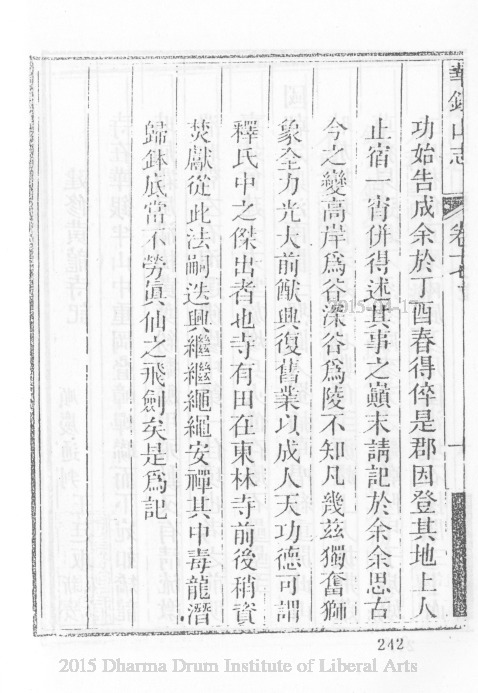 華銀山志
卷十七
十
功始告成余於丁酉春得倅是郡因登其地上人
止宿一宵併得述其事之巔末請記於余余思古
今之變高岸爲谷深谷爲陵不知凡幾茲獨奮獅
象全力光大前猷興復舊業以成人天功德可謂
釋氏中之傑出者也寺有田在東林寺前後稍資
焚獻從此法嗣迭興繼繼繩繩安禪其中毒龍潛
歸鉢底當不勞眞仙之飛劍矣是爲記
242
2015 Dharma Drum Institute of Liberal Arts